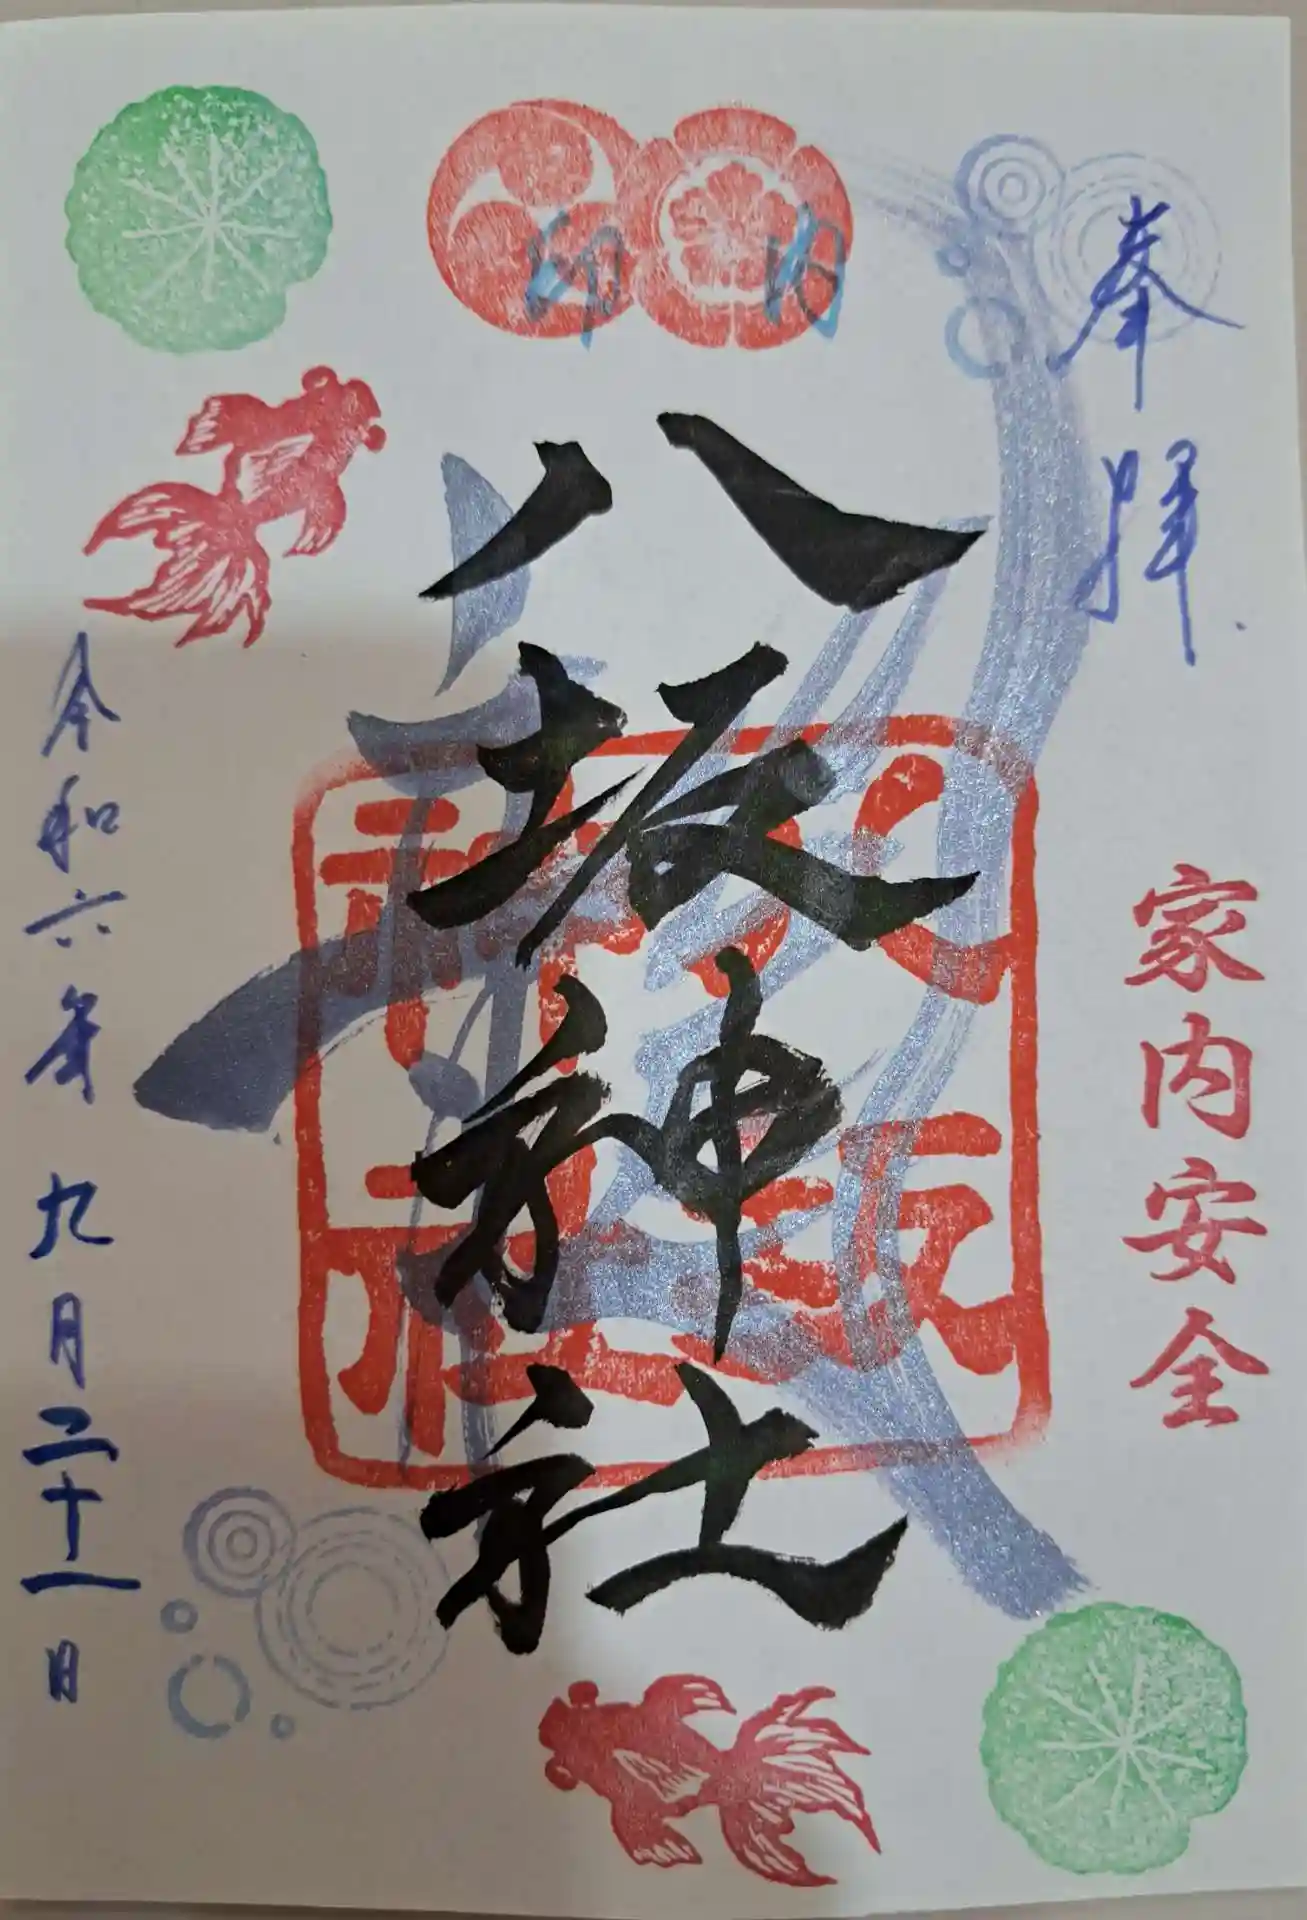 奉拝
家内安全
印内
八坂神社
八坂
神社
令和六年 九月二十一日